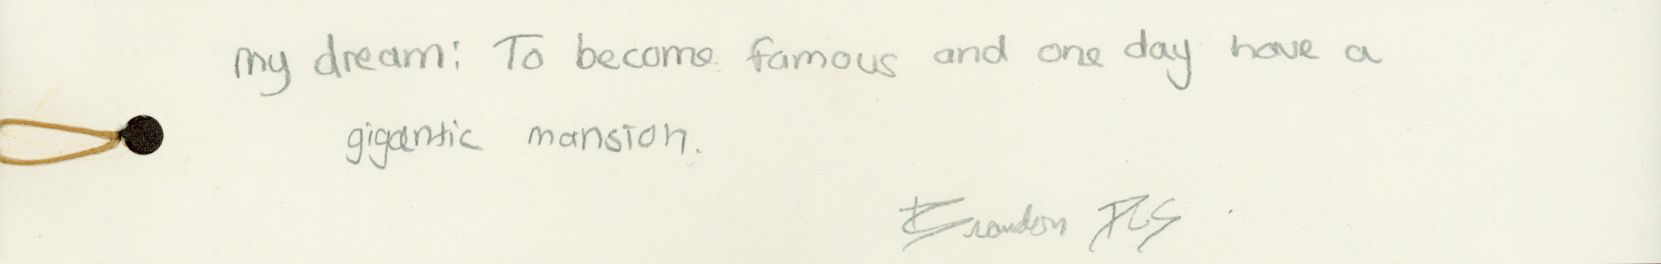 my dream: To become famous and one day have a
gigantic mansion.
Brandon